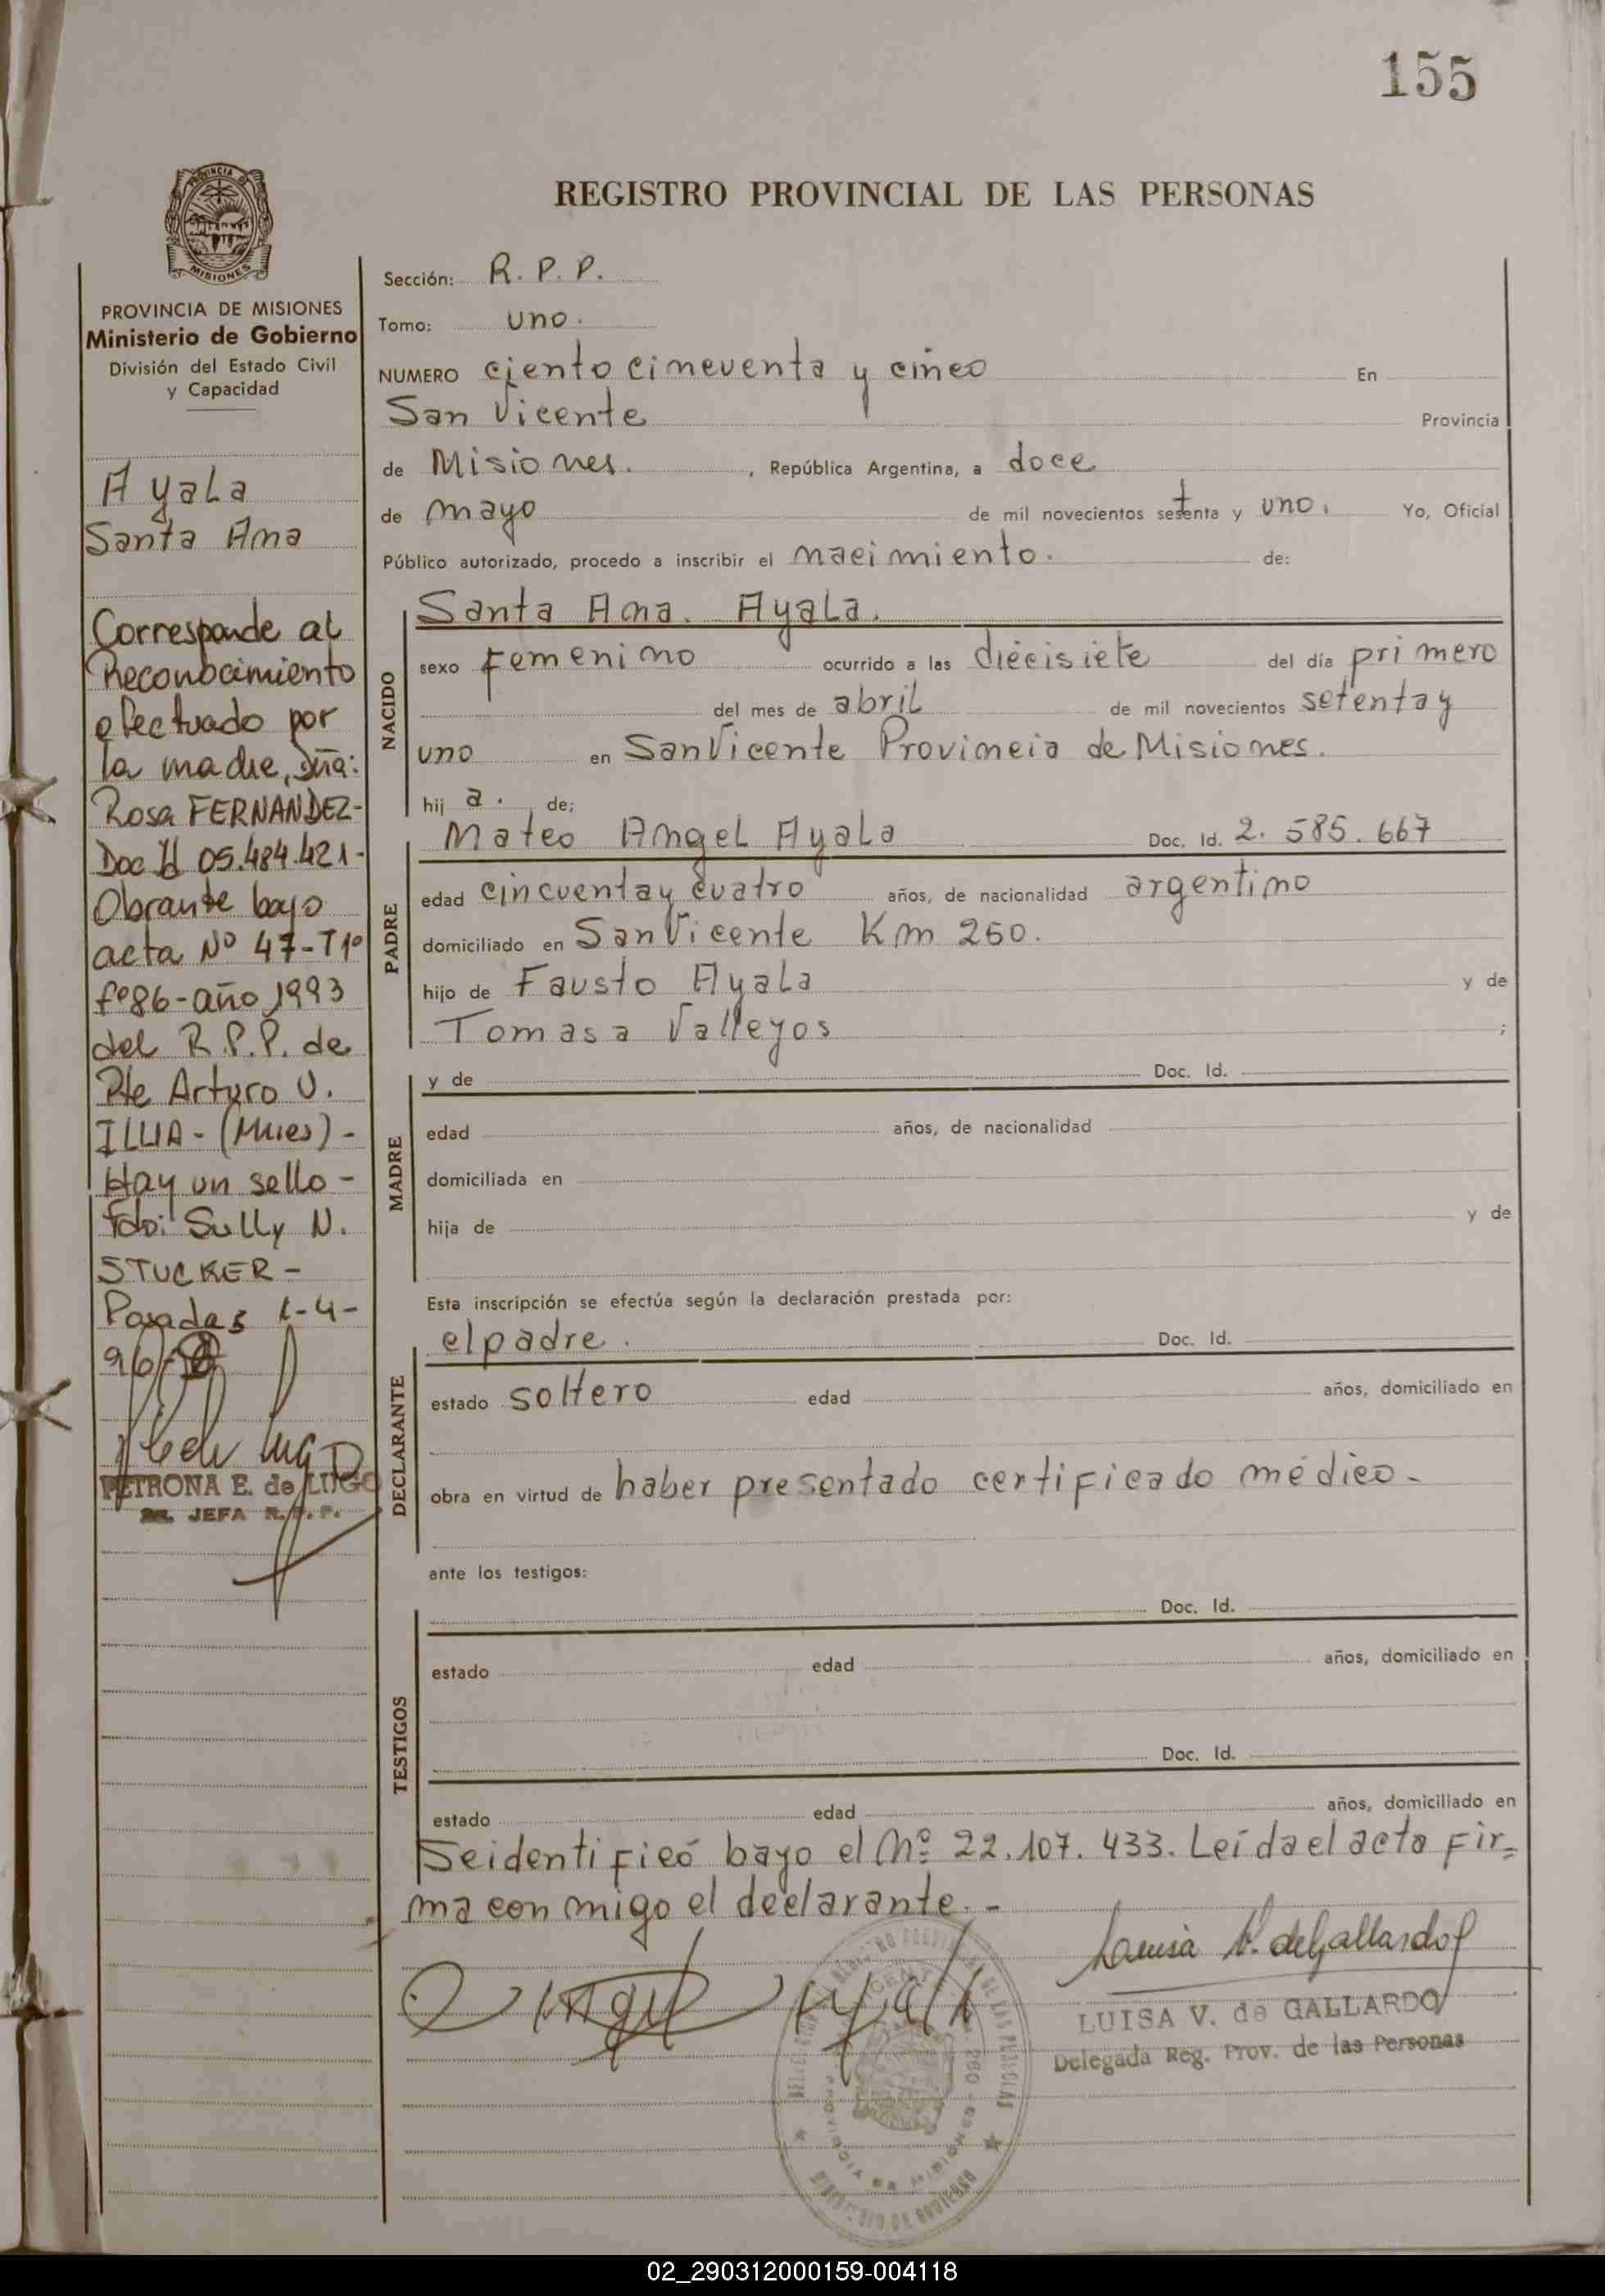 155
REGISTRO PROVINCIAL DE LAS PERSONAS
PROVINCIA DE MISIONES
Ministerio de Gobierno
División del Estado Civil
y Capacidad
Ayala
Santa Ana
Corresponde al
Reconocimiento
efectuado por
la madre, Dña:
Rosa FERNANDEZ-
Doc Id 05.484.421-
Obrante bajo
acta Nº 47-T1º
fº86-año 1993
del R.P.P. de
Pte Arturo U.
ILLIA-(Mnes)-
Hay un sello-
Fdo: Sully N.
STUCKER-
Posadas 1-4-
96
PETRONA E. de LUGO
JEFA R.P.P.
Sección: R. P. P.
Tomo: uno.
NUMERO ciento cincuenta y cinco En
San Vicente Provincia
de Misiones. , República Argentina, a doce
de mayo de mil novecientos setenta y uno. Yo, Oficial
Público autorizado, procedo a inscribir el nacimiento. de:
NACIDO
Santa Ana. Ayala.
sexo Femenino ocurrido a las diecisiete del día primero
del mes de abril de mil novecientos setenta y
uno en San Vicente Provincia de Misiones.
hij a. de:
PADRE
Mateo Angel Ayala Doc. Id. 2. 585. 667
edad cincuenta y cuatro años, de nacionalidad argentino
domiciliado en San Vicente Km 260.
hijo de Fausto Ayala y de
Tomasa Valleyos ;
MADRE
y de Doc. Id.
edad años, de nacionalidad
domiciliada en
hija de y de
Esta inscripción se efectúa según la declaración prestada por:
DECLARANTE
el padre. Doc. Id.
estado soltero edad años, domiciliado en
obra en virtud de haber presentado certificado médico-
ante los testigos:
TESTIGOS
Doc. Id.
estado edad años, domiciliado en
Doc. Id.
estado edad años, domiciliado en
Se identificó bayo el Nº 22.107.433. Leída el acta fir=
ma con migo el declarante.-
Luisa V. de Gallardo
LUISA V. de GALLARDO
Delegada Reg. Prov. de las Personas
02_290312000159-004118